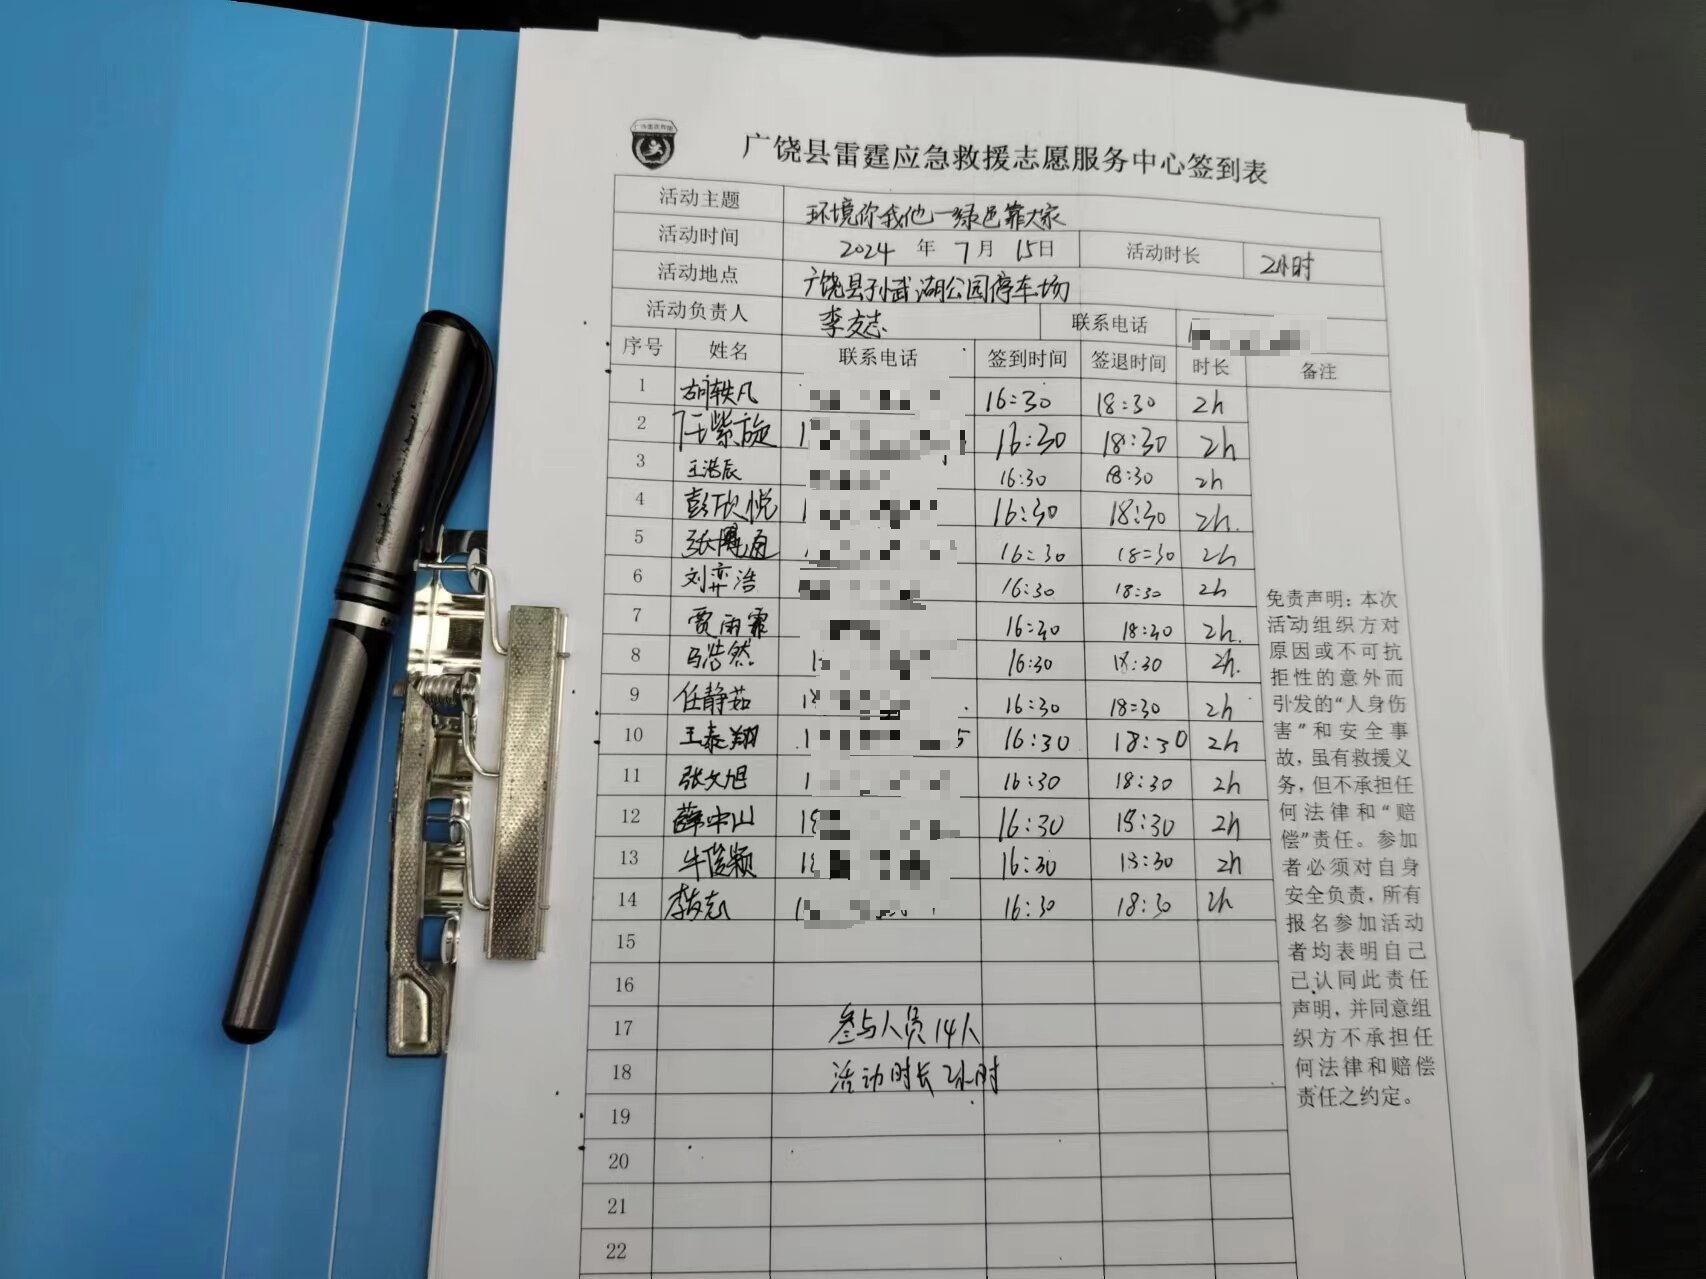 广饶县雷霆应急救援志愿服务中心签到表
活动主题 环境你我他一绿色靠大家
活动时间 2024 年 7 月 15日 活动时长 2小时
活动地点 广饶县孙武湖公园停车场
活动负责人 李友志 联系电话
序号 姓名 联系电话 签到时间 签退时间 时长 备注
1 胡轶凡 16:30 18:30 2h
2 任紫旋 16:30 18:30 2h
3 王浩辰 16:30 18:30 2h
4 彭欣悦 16:30 18:30 2h.
5 张博涵 16:30 18:30 2h
6 刘弈浩 16:30 18:30 2h
7 贾雨霏 16:30 18:30 2h.
8 马浩然 16:30 18:30 2h.
9 任静茹 16:30 18:30 2h
10 王泰翔 16:30 18:30 2h
11 张文旭 16:30 18:30 2h
12 薛中山 16:30 18:30 2h
13 牛俊颖 16:30 18:30 2h
14 李友志 16:30 18:30 2h
15
16
17 参与人员14人
18 活动时长2小时
19
20
21
22
免责声明：本次
活动组织方对
原因或不可抗
拒性的意外而
引发的“人身伤
害”和安全事
故，虽有救援义
务，但不承担任
何法律和“赔
偿”责任。参加
者必须对自身
安全负责，所有
报名参加活动
者均表明自己
已认同此责任
声明，并同意组
织方不承担任
何法律和赔偿
责任之约定。